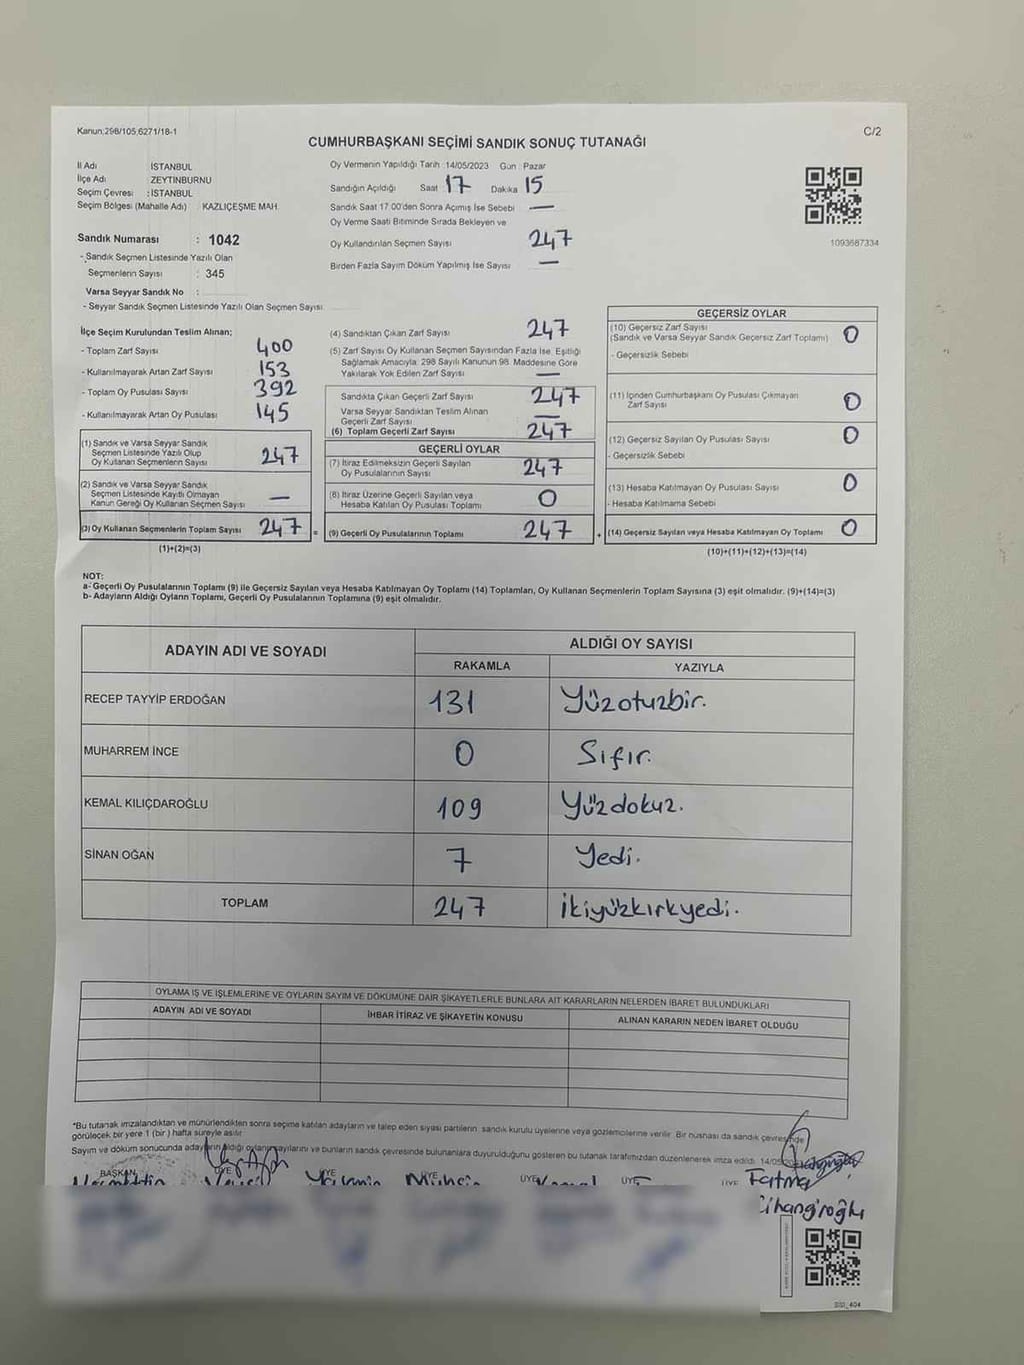 Kanun;298/105,6271/18-1
C/2
CUMHURBAŞKANI SEÇİMİ SANDIK SONUÇ TUTANAĞI
İl Adı İSTANBUL
İlçe Adı ZEYTINBURNU
Seçim Çevresi : İSTANBUL
Seçim Bölgesi (Mahalle Adı) KAZLIÇEŞME MAH.
Sandık Numarası : 1042
- Sandık Seçmen Listesinde Yazılı Olan
Seçmenlerin Sayısı : 345
Varsa Seyyar Sandık No :
- Seyyar Sandık Seçmen Listesinde Yazılı Olan Seçmen Sayısı
Oy Vermenin Yapıldığı Tarih : 14/05/2023 Gün : Pazar
Sandığın Açıldığı Saat 17 Dakika 15
Sandık Saat 17 00'den Sonra Açımış İse Sebebi —
Oy Verme Saati Bitiminde Sırada Bekleyen ve
Oy Kullandırılan Seçmen Sayısı 247
Birden Fazla Sayım Döküm Yapılmış İse Sayısı —
1093687334
İlçe Seçim Kurulundan Teslim Alınan;
- Toplam Zarf Sayısı 400
- Kullanılmayarak Artan Zarf Sayısı 153
- Toplam Oy Pusulası Sayısı 392
- Kullanılmayarak Artan Oy Pusulası 145
(1) Sandık ve Varsa Seyyar Sandık
Seçmen Listesinde Yazılı Olup
Oy Kullanan Seçmenlerin Sayısı 247
(2) Sandık ve Varsa Seyyar Sandık
Seçmen Listesinde Kayıtlı Olmayan
Kanun Gereği Oy Kullanan Seçmen Sayısı —
(3) Oy Kullanan Seçmenlerin Toplam Sayısı 247 =
(1)+(2)=(3)
(4) Sandıktan Çıkan Zarf Sayısı 247
(5) Zarf Sayısı Oy Kullanan Seçmen Sayısından Fazla İse, Eşitliği
Sağlamak Amacıyla; 298 Sayılı Kanunun 98. Maddesine Göre
Yakılarak Yok Edilen Zarf Sayısı —
Sandıkta Çıkan Geçerli Zarf Sayısı 247
Varsa Seyyar Sandıktan Teslim Alınan
Geçerli Zarf Sayısı —
(6) Toplam Geçerli Zarf Sayısı 247
GEÇERLİ OYLAR
(7) İtiraz Edilmeksizin Geçerli Sayılan
Oy Pusulalarının Sayısı 247
(8) İtiraz Üzerine Geçerli Sayılan veya
Hesaba Katılan Oy Pusulası Toplamı 0
(9) Geçerli Oy Pusulalarının Toplamı 247 +
GEÇERSİZ OYLAR
(10) Geçersiz Zarf Sayısı
(Sandık ve Varsa Seyyar Sandık Geçersiz Zarf Toplamı) 0
- Geçersizlik Sebebi
(11) İçinden Cumhurbaşkanı Oy Pusulası Çıkmayan
Zarf Sayısı 0
(12) Geçersiz Sayılan Oy Pusulası Sayısı 0
- Geçersizlik Sebebi
(13) Hesaba Katılmayan Oy Pusulası Sayısı 0
- Hesaba Katılmama Sebebi
(14) Geçersiz Sayılan veya Hesaba Katılmayan Oy Toplamı 0
(10)+(11)+(12)+(13)=(14)
NOT:
a- Geçerli Oy Pusulalarının Toplamı (9) ile Geçersiz Sayılan veya Hesaba Katılmayan Oy Toplamı (14) Toplamları, Oy Kullanan Seçmenlerin Toplam Sayısına (3) eşit olmalıdır. (9)+(14)=(3)
b- Adayların Aldığı Oyların Toplamı, Geçerli Oy Pusulalarının Toplamına (9) eşit olmalıdır.
ADAYIN ADI VE SOYADI
ALDIĞI OY SAYISI
RAKAMLA YAZIYLA
RECEP TAYYİP ERDOĞAN 131 Yüzotuzbir.
MUHARREM İNCE 0 Sıfır.
KEMAL KILIÇDAROĞLU 109 Yüzdokuz.
SİNAN OĞAN 7 Yedi.
TOPLAM 247 İkiyüzkırkyedi.
OYLAMA İŞ VE İŞLEMLERİNE VE OYLARIN SAYIM VE DÖKÜMÜNE DAİR ŞİKAYETLERLE BUNLARA AİT KARARLARIN NELERDEN İBARET BULUNDUKLARI
ADAYIN ADI VE SOYADI İHBAR İTİRAZ VE ŞİKAYETİN KONUSU ALINAN KARARIN NEDEN İBARET OLDUĞU
*Bu tutanak imzalandıktan ve mühürlendikten sonra seçime katılan adayların ve talep eden siyasi partilerin sandık kurulu üyelerine veya gözlemcilerine verilir. Bir nüshası da sandık çevresinde
görülecek bir yere 1 (bir) hafta süreyle asılır.
Sayım ve döküm sonucunda adayların aldığı oyların sayılarını ve bunların sandık çevresinde bulunanlara duyurulduğunu gösteren bu tutanak tarafımızdan düzenlenerek imza edildi. 14/05/
BAŞKAN ÜYE ÜYE ÜYE ÜYE ÜYE ÜYE
Yasemin Muhsin Kemal Fatma
Cihangiroğlu